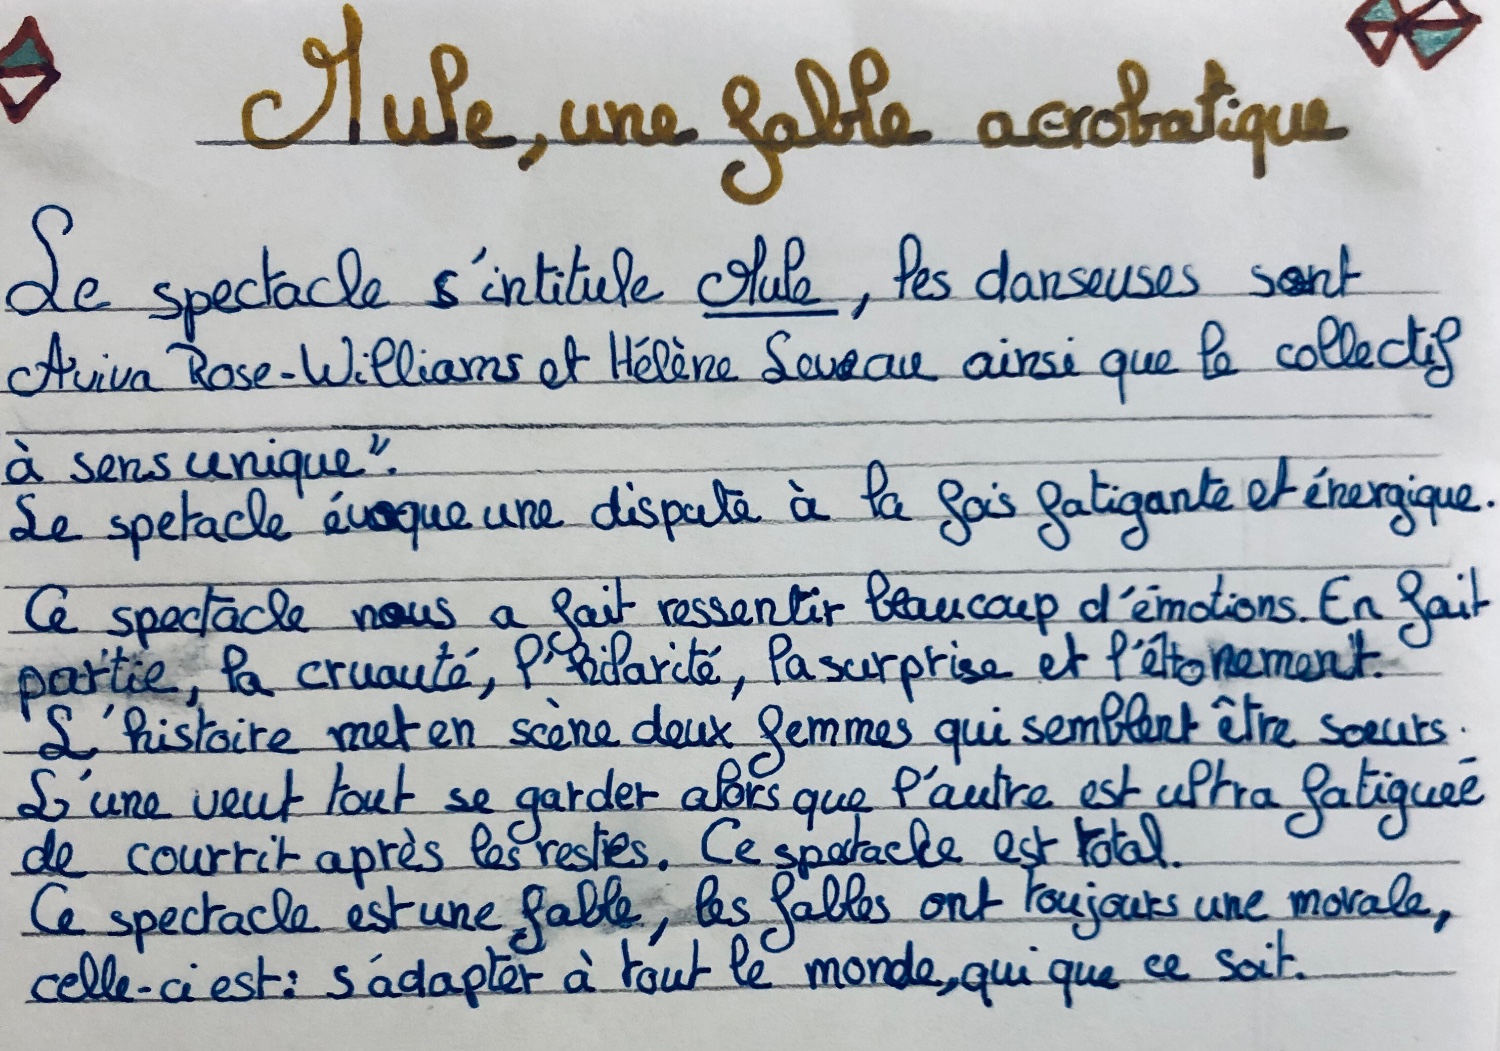 Mule, une fable acrobatique
Le spectacle s'intitule Mule, les danseuses sont
Aviva Rose-Williams et Hélène Leveau ainsi que le collectif
à sens unique".
Le spetacle évoque une dispute à la fois fatigante et énergique.
Ce spectacle nous a fait ressentir beaucoup d'émotions. En fait
partie, la cruauté, l'hilarité, la surprise et l'éttonement.
L'histoire met en scène deux femmes qui semblent être sœurs.
L'une veut tout se garder alors que l'autre est ultra fatiguée
de courrir après les restes. Ce spetacle est total.
Ce spectacle est une fable, les fables ont toujours une morale,
celle-ci est: s'adapter à tout le monde, qui que ce soit.